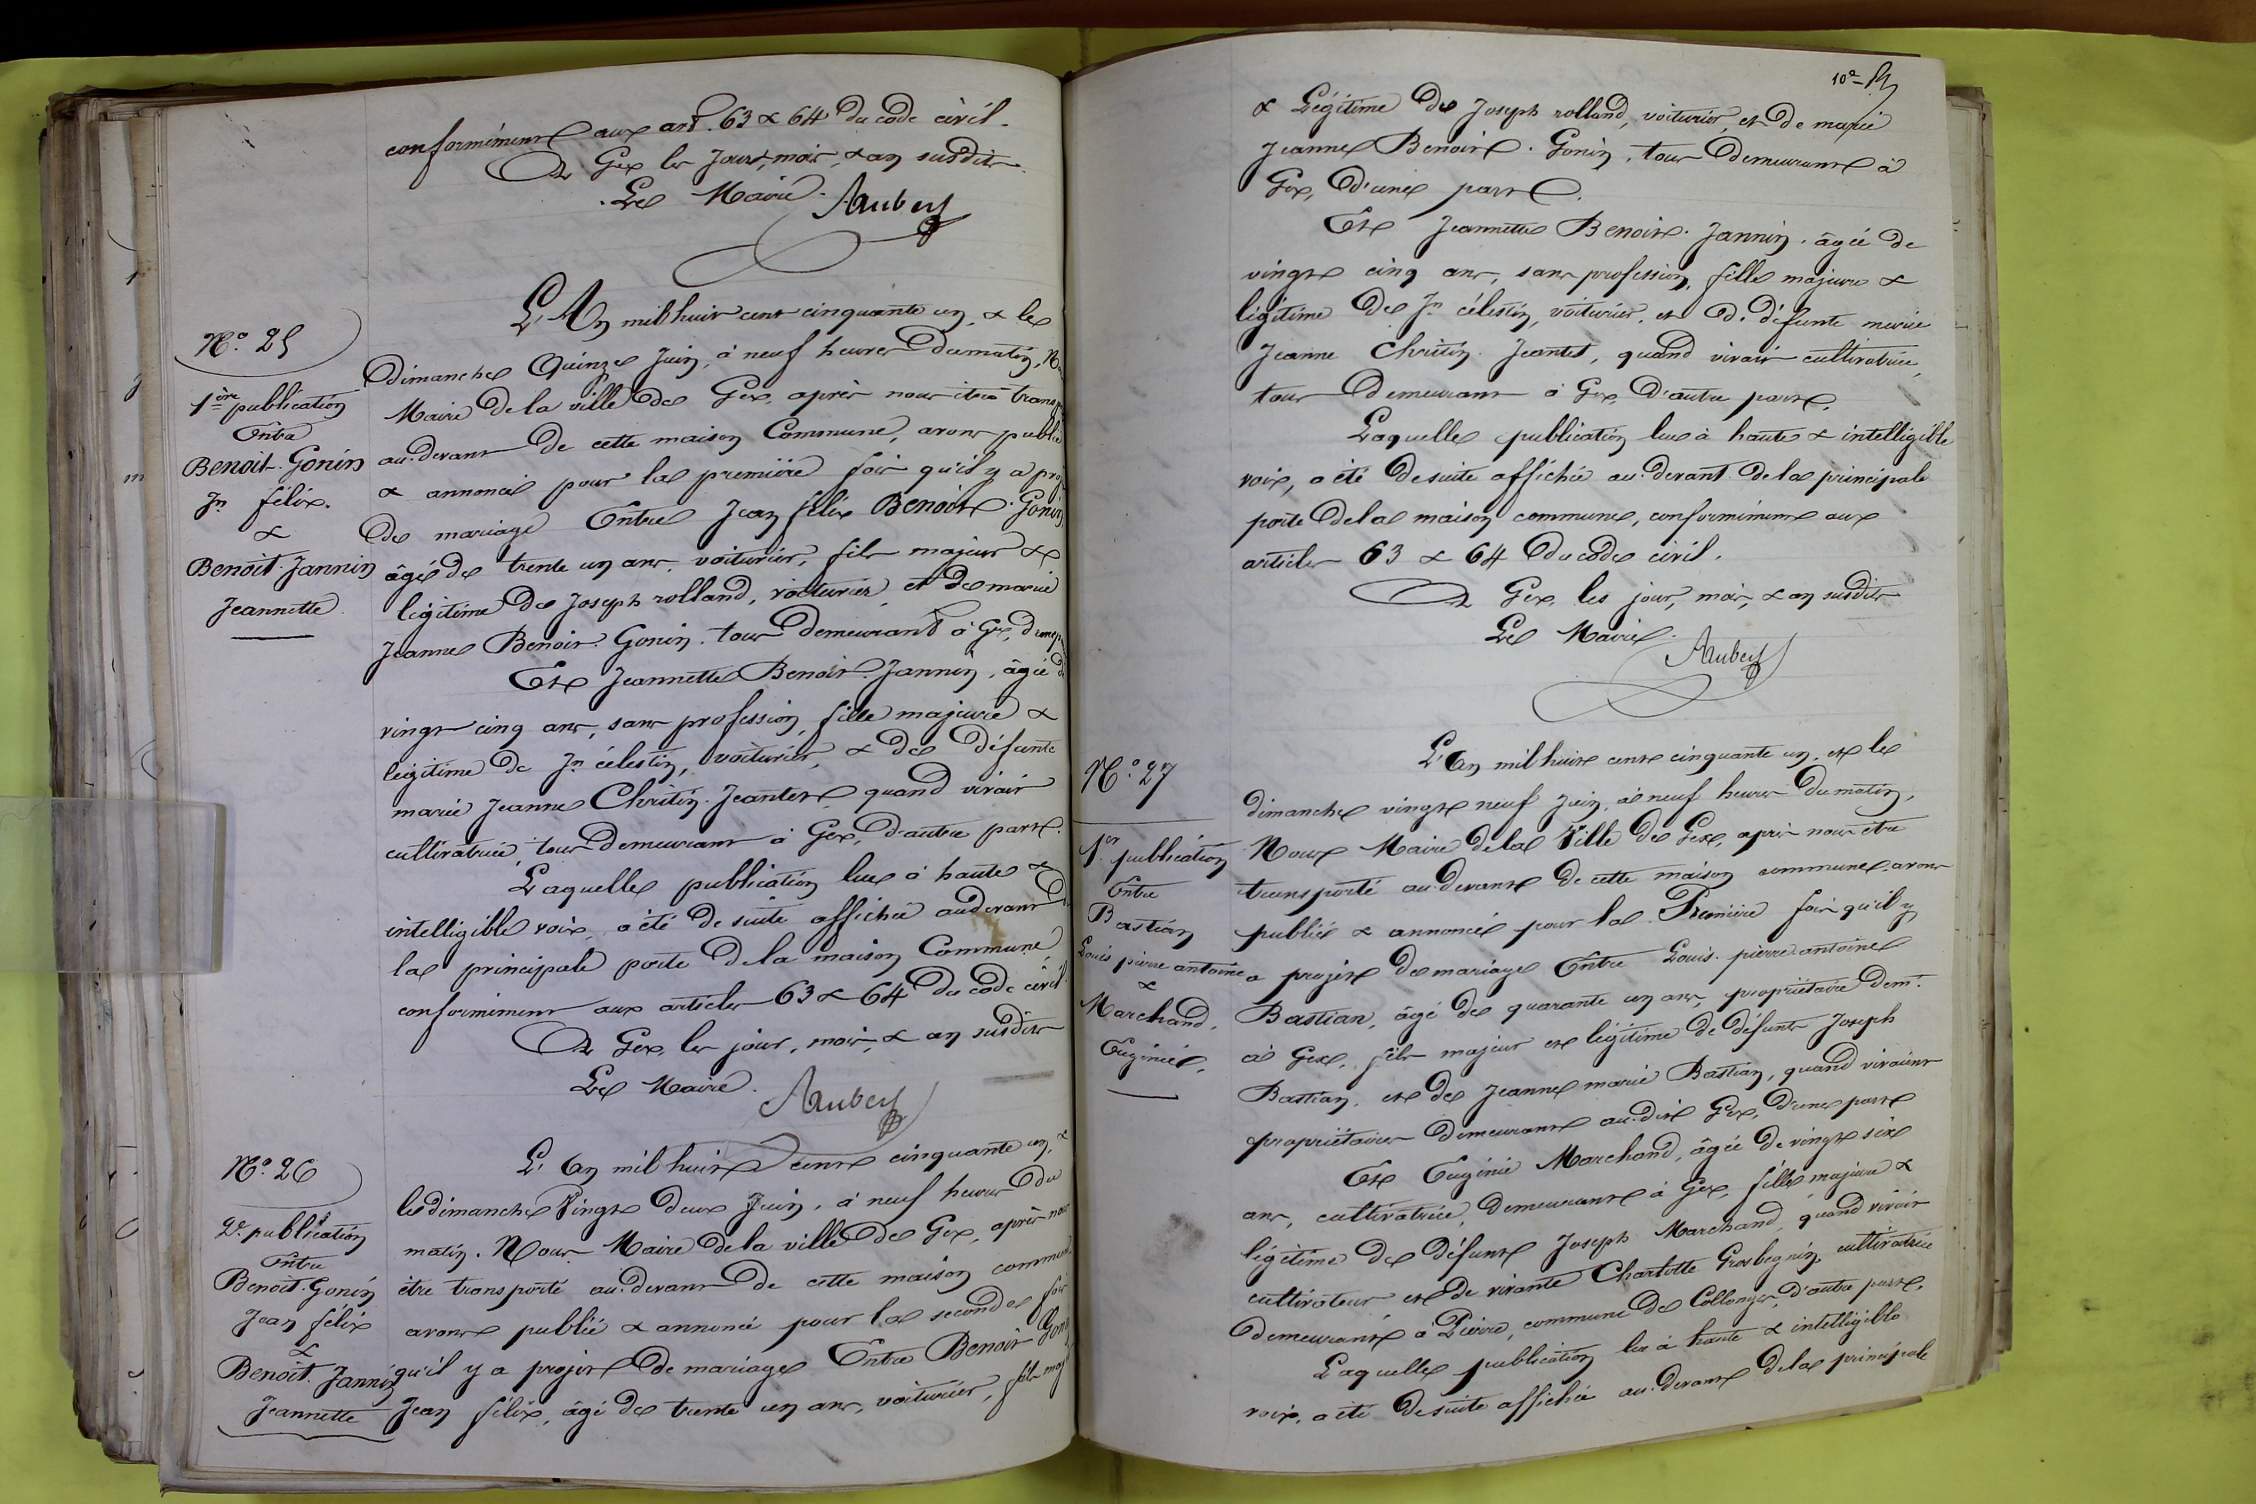 conformément aux art. 63 & 64 du code civil.
A Gex les jour, mois, & an susdits.
Le Maire. Aubery
N.° 25
1ère publication
Entre
Benoit-Gonin
Jn félix.
&
Benoit-Jannin
Jeannette
L'An mil huit cent cinquante un, & le
dimanche Quinze Juin, à neuf heures du matin,
Maire de la ville de Gex, après nous être
au-devant de cette maison Commune, avons publié
& annoncé pour la première fois qu'il y a
de mariage Entre Jean félix Benoit-Gonin
âgé de trente un ans, voiturier, fils majeur &
légitime de Joseph rolland, voiturier, et de marie
Jeanne Benoit-Gonin, tous demeurant à Gex,
Et Jeannette Benoit-Jannin, âgée de
vingt cinq ans, sans profession, fille majeure &
légitime de Jn célestin, voiturier, & de défunte
marie Jeanne Chritin-Jeantet quand vivait
cultivatrice, tous demeurant à Gex, d'autre part.
Laquelle publication lue à haute &
intelligible voix, a été de suite affichée au devant de
la principale porte de la maison Commune,
conformément aux articles 63 & 64 du code civil.
A Gex, les jour, mois, & an susdits
Le Maire. Aubery
N.° 26
2e publication
Entre
Benoit-Gonin
Jean félix
&
Benoit-Jannin
Jeannette
L'An mil huit cent cinquante un, &
le dimanche Vingt deux Juin, à neuf heures du
matin. Nous Maire de la ville de Gex, après nous
être transporté au-devant de cette maison commune
avons publié & annoncé pour la seconde fois
qu'il y a projet de mariage Entre Benoit-Gonin
Jean félix, âgé de trente un ans, voiturier, fils
& Légitime de Joseph rolland, voiturier, et de marie
Jeanne Benoit-Gonin, tous demeurant à
Gex, d'une part.
Et Jeannette Benoit-Jannin, âgée de
vingt cinq ans, sans profession, fille majeure &
légitime de Jn célestin, voiturier, et de défunte marie
Jeanne Chritin-Jeantet, quand vivait cultivatrice,
tous demeurant à Gex, d'autre part.
Laquelle publication lue à haute & intelligible
voix, a été de suite affichée au-devant de la principale
porte de la maison commune, conformément aux
articles 63 & 64 du code civil.
A Gex, les jour, mois, & an susdits
Le Maire.
Aubery
N.° 27
1er publication
Entre
Bastian
Louis pierre antoine
&
Marchand,
Eugénie,
L'An mil huit cent cinquante un, et le
dimanche vingt neuf Juin, à neuf heures du matin,
Nous Maire de la Ville de Gex, après nous être
transporté au-devant de cette maison commune, avons
publié & annoncé pour la Première fois qu'il y
a projet de mariage Entre Louis-pierre-antoine
Bastian, âgé de quarante un ans, propriétaire demt.
à Gex, fils majeur et légitime de défunts Joseph
Bastian, et de Jeanne marie Bastian, quand vivaient
propriétaires demeurant au-dit Gex, d'une part
Et Eugénie Marchand, âgée de vingt six
ans, cultivatrice, demeurant à Gex, fille majeure &
légitime de défunt Joseph Marchand, quand vivait
cultivateur et de vivante Charlotte Grosbegnin, cultivatrice
demeurant à Pierre, commune de Collonges, d'autre part.
Laquelle publication lue à haute & intelligible
voix, a été de suite affichée au-devant de la principale